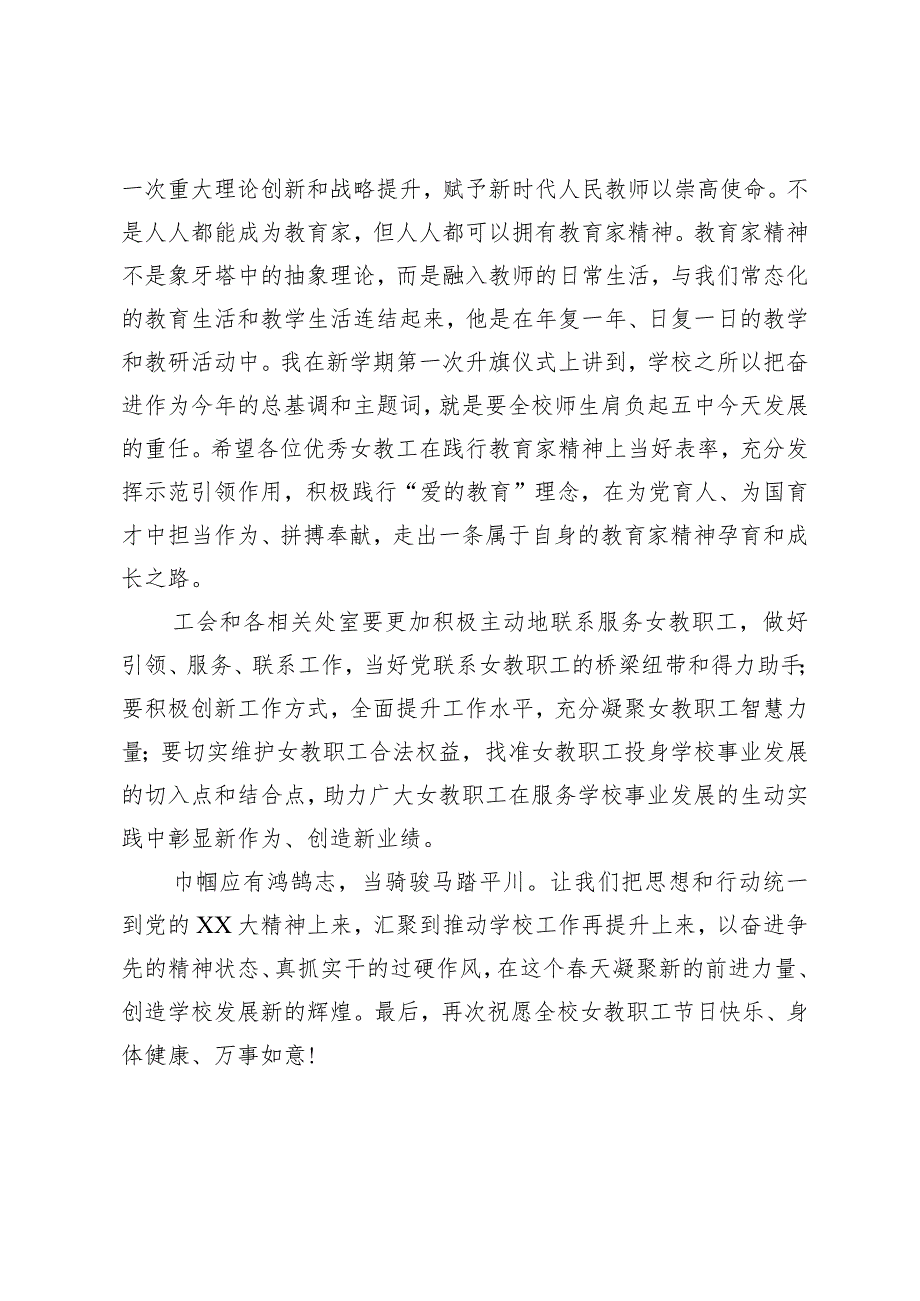 一次重大理论创新和战略提升，赋予新时代人民教师以崇高使命。不
是人人都能成为教育家，但人人都可以拥有教育家精神。教育家精神
不是象牙塔中的抽象理论，而是融入教师的日常生活，与我们常态化
的教育生活和教学生活连结起来，他是在年复一年、日复一日的教学
和教研活动中。我在新学期第一次升旗仪式上讲到，学校之所以把奋
进作为今年的总基调和主题词，就是要全校师生肩负起五中今天发展
的重任。希望各位优秀女教工在践行教育家精神上当好表率，充分发
挥示范引领作用，积极践行“爱的教育”理念，在为党育人、为国育
才中担当作为、拼搏奉献，走出一条属于自身的教育家精神孕育和成
长之路。
工会和各相关处室要更加积极主动地联系服务女教职工，做好
引领、服务、联系工作，当好党联系女教职工的桥梁纽带和得力助手；
要积极创新工作方式，全面提升工作水平，充分凝聚女教职工智慧力
量；要切实维护女教职工合法权益，找准女教职工投身学校事业发展
的切入点和结合点，助力广大女教职工在服务学校事业发展的生动实
践中彰显新作为、创造新业绩。
巾帼应有鸿鹄志，当骑骏马踏平川。让我们把思想和行动统一
到党的XX大精神上来，汇聚到推动学校工作再提升上来，以奋进争
先的精神状态、真抓实干的过硬作风，在这个春天凝聚新的前进力量、
创造学校发展新的辉煌。最后，再次祝愿全校女教职工节日快乐、身
体健康、万事如意！